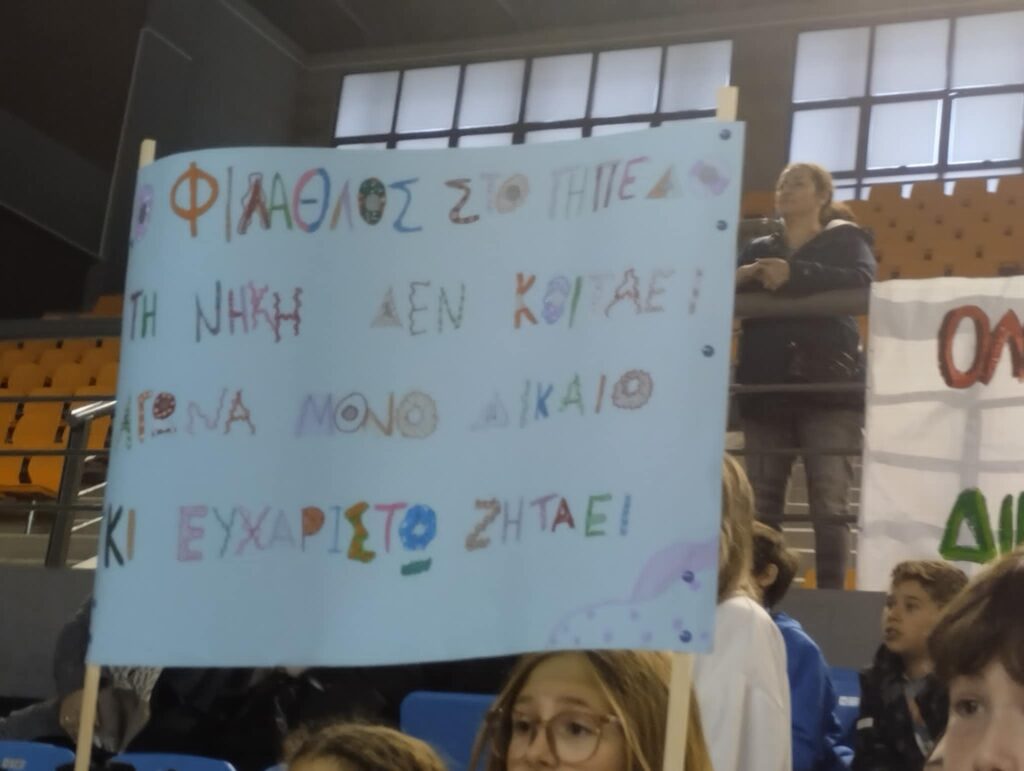 Ο ΦΙΛΑΘΛΟΣ ΣΤΟ ΓΗΠΕΔΟ
ΤΗ ΝΗΚΗ ΔΕΝ ΚΟΙΤΑΕΙ
ΑΓΩΝΑ ΜΟΝΟ ΔΙΚΑΙΟ
ΚΙ ΕΥΧΑΡΙΣΤΩ ΖΗΤΑΕΙ